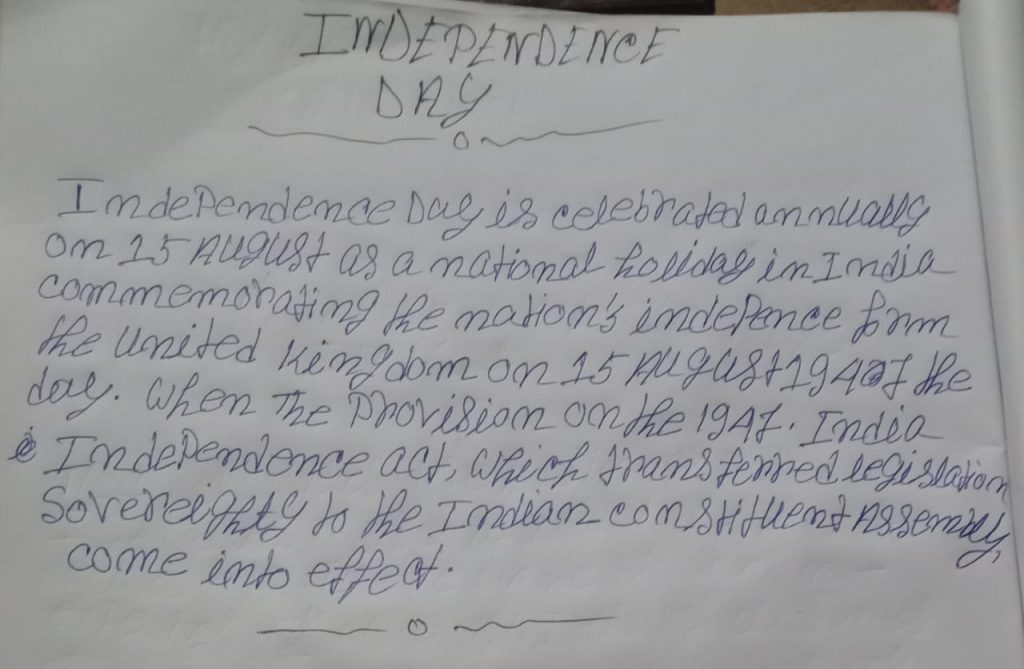 INDEPENDENCE
DAY
Independence Day is celebrated annually
on 15 August as a national holiday in India
commemorating the nation's indepence form
the United Kingdom on 15 August 1947 the
day. When The Provision on the 1947. India
Independence act, which transferred legislation
Sovereighty to the Indian constituent Assembly,
come into effect.